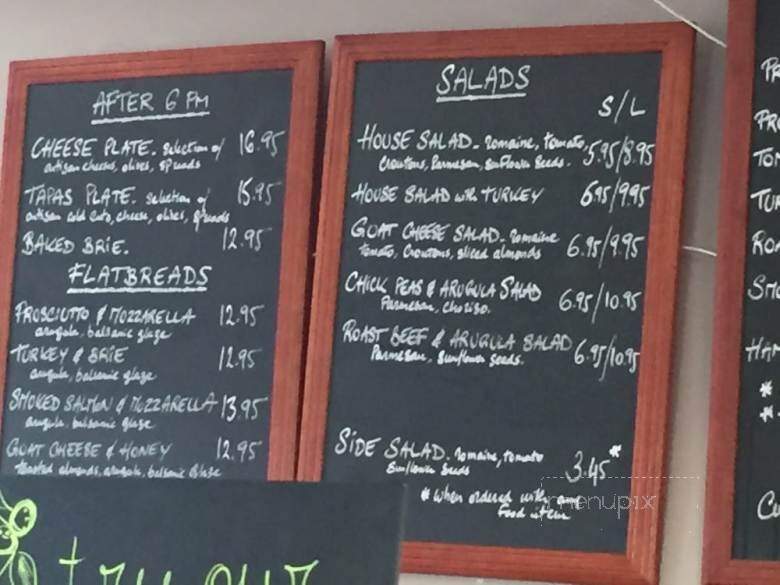 AFTER 6 PM
CHEESE PLATE. Selection of 16.95
artisan cheeses, olives, spreads
TAPAS PLATE. Selection of 15.95
artisan cold cuts, cheese, olives, spreads
BAKED BRIE. 12.95
FLATBREADS
PROSCIUTTO & MOZZARELLA 12.95
arugula, balsamic glaze
TURKEY & BRIE 12.95
arugula, balsamic glaze
SMOKED SALMON & MOZZARELLA 13.95
arugula, balsamic glaze
GOAT CHEESE & HONEY 12.95
toasted almonds, arugula, balsamic glaze
try our
SALADS
S/L
HOUSE SALAD. romaine, tomato, 5.95/8.95
Croutons, Parmesan, Sunflower Seeds.
HOUSE SALAD with TURKEY 6.95/9.95
GOAT CHEESE SALAD. romaine 6.95/9.95
tomato, Croutons, sliced almonds
CHICK PEAS & ARUGULA SALAD 6.95/10.95
Parmesan, chorizo.
ROAST BEEF & ARUGULA SALAD 6.95/10.95
Parmesan, Sunflower seeds.
SIDE SALAD. romaine, tomato 3.45*
Sunflower Seeds
* When ordered with any
Food item
menupix
PR
TOM
TUR
ROA
SMO
HAM
*
*